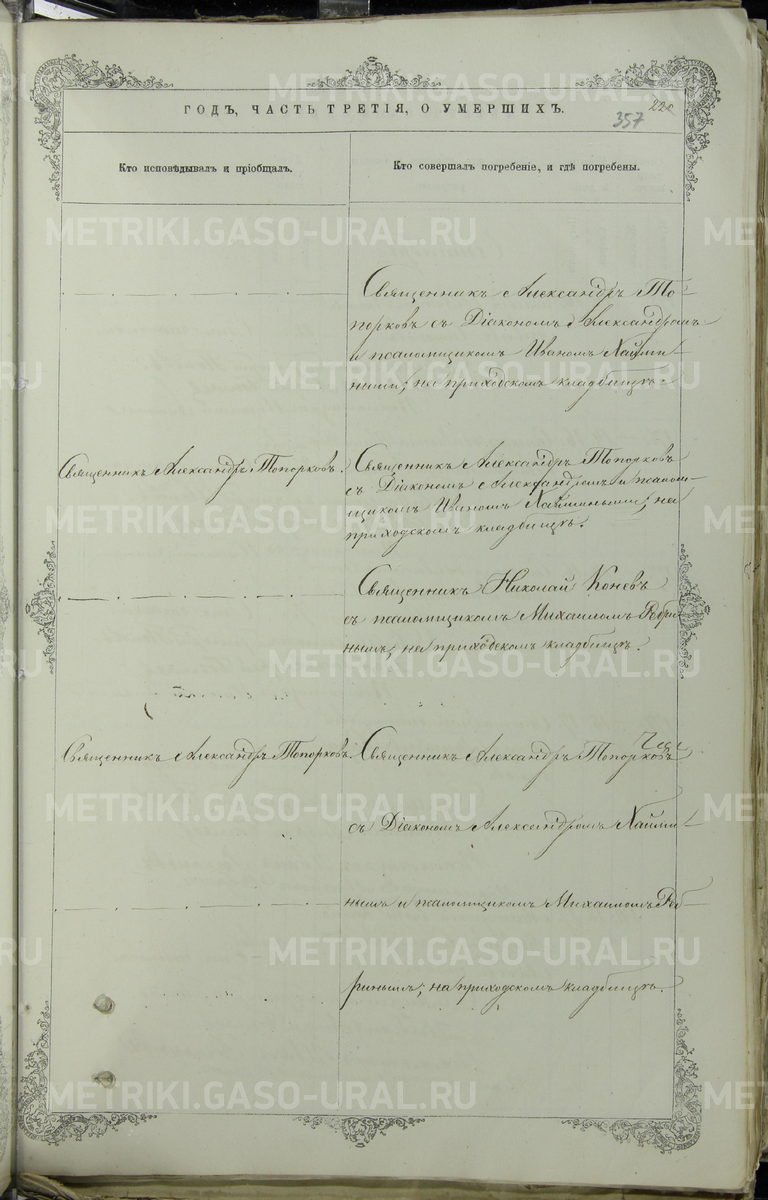 ГОДЪ, ЧАСТЬ ТРЕТІЯ, О УМЕРШИХЪ.
357
Кто исповѣдывалъ и пріобщалъ.
Кто совершалъ погребеніе, и гдѣ погребены.
Священникъ Александръ То-
порковъ съ Діакономъ Александромъ
и псаломщикомъ Иваномъ Хаймі-
ными; на приходскомъ кладбищѣ.
Священникъ Александръ Топорковъ.
Священникъ Александръ Топорковъ
съ Діакономъ Александромъ и псалом-
щикомъ Иваномъ Хаймиными; на
приходскомъ кладбищѣ.
Священникъ Николай Коневъ
съ псаломщикомъ Михаиломъ Ребри-
нымъ; на приходскомъ кладбищѣ.
Священникъ Александръ Топорковъ.
Священникъ Александръ Топорковъ
съ Діакономъ Александромъ Хайми-
нымъ и псаломщикомъ Михаиломъ Реб-
ринымъ; на приходскомъ кладбищѣ.
METRIKI.GASO-URAL.RU